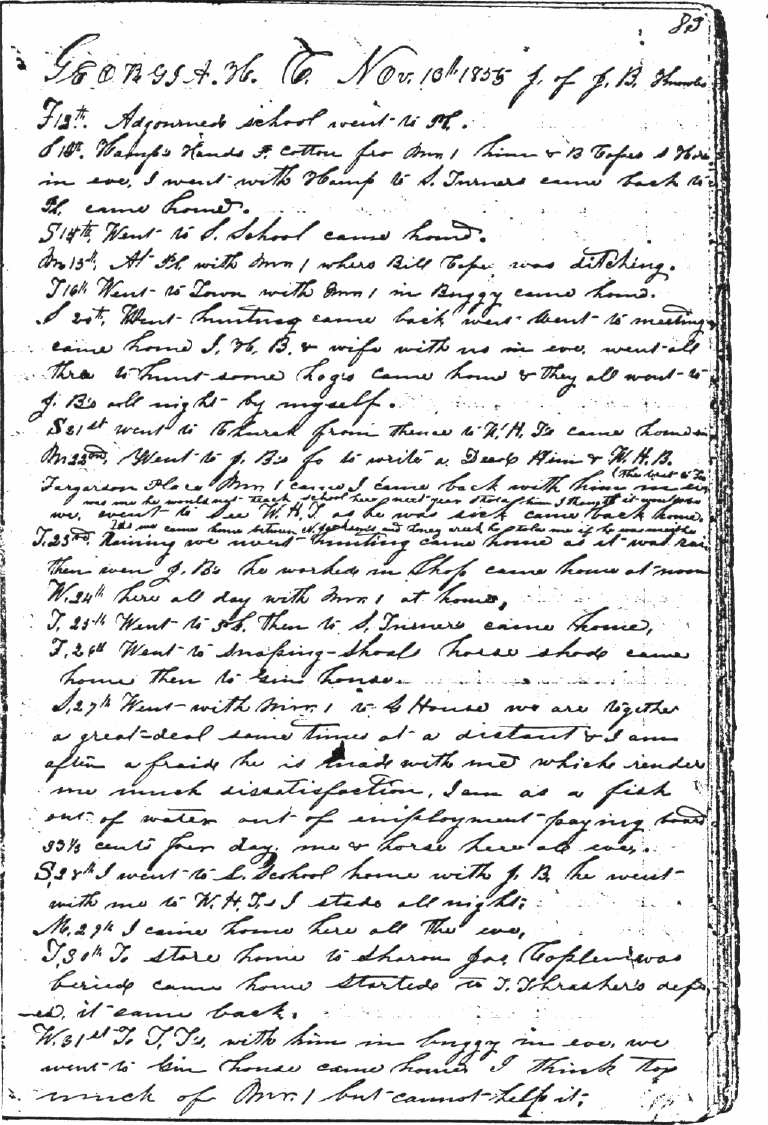 83
GEORGIA. H. C. Nov. 13th 1855 J. of J. B.
F 12th. Adgourned school went to Pl.
S 13th. Hamp's Hands P. cotton for Mr. 1 him & B Cope
in eve, I went with Hamp to S. Turners came back to
Pl. came home.
S 14th, Went to S. School came home.
M 15th, At Pl. with Mr. 1 where Bill Cope was ditching.
T 16th Went to Town with Mr. 1 in Buggy came home.
S 20th, Went hunting came back went to meeting
came home J, H, B, & wife with us in eve, went all
three to hunt some hogs came home & they all went to
J. B's all night by myself.
S 21st went to Church from thence to W. H. T's came home
M 22nd, Went to J. B's fo to write a Deed Him & W. H. B.
Fargarson Place Mr. 1 came I came back with him
was me he would not teach school here next year
we, went to see W. H. T as he was sick came back home,
As we came home between and honey creek he told me if he was
T. 23rd, Raining we went hunting came home as it was
then went J. B's he worked in Shop came home at noon
W. 24th here all day with Mr. 1 at home,
T, 25th Went to then to S. Turners came home,
F, 26th Went to Snaping-Shoal horse shod came
home then to Gin house.
S, 27th Went with Mr. 1 to G House we are together
a great-deal some times at a distant & I am
after a fraid he is mad with me which render
me much dissatisfaction, I am as a fish
out of water out of employment paying board
33 1/3 cents per day, me & horse here all eve,
S, 28th I went to S. School home with J. B. he went
with me to W. H. T.s I staid all night;
M, 29th I came home here all the eve,
T, 30th To store home to Sharon Jas, was
beried came home started to T. Thrasher's
it came back.
W. 31st To T, T's, with him in buggy in eve, we
went to Gin house came home, I think too
much of Mr. 1 but cannot help it;